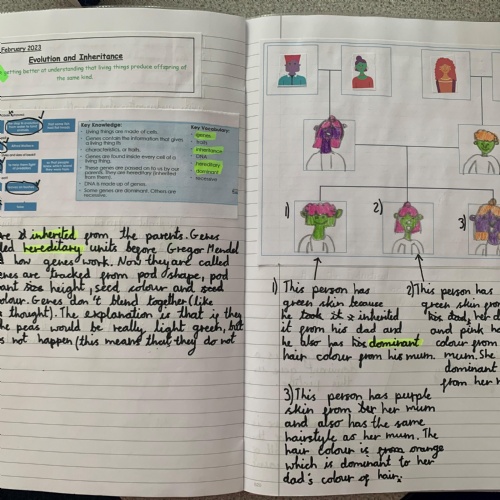 February 2023
Evolution and Inheritance
getting better at understanding that living things produce offspring of
the same kind.
Key Knowledge:
Living things are made of cells.
Genes contain the information that gives
a living thing its
characteristics, or traits.
Genes are found inside every cell of a
living thing.
These genes are passed on to us by our
parents. They are hereditary (inherited
from them).
DNA is made up of genes.
Some genes are dominant. Others are
recessive.
Key Vocabulary:
genes
traits
inheritance
DNA
hereditary
dominant
recessive
are inherited from, the parents. Genes
led hereditary units before Gregor Mendel
d how genes work. Now they are called
enes are tracked from pod shape, pod
ant size height, seed colour and seed
olour. Genes don't blend together (like
thought). The explanation is that if they
he peas would be really light green, but
s not happen (this means that they do not
1)
2)
3)
1) This person has
green skin because
he took it inherited
it from his dad and
he also has his dominant
hair colour from his mum.
2) This person has
green skin from
his dad, her d
and pink he
colour from
mum. She
dominant
from her
3) This person has purple
skin from her mum
and also has the same
hairstyle as her mum. The
hair colour is from orange
which is dominant to her
dad's colour of hair.